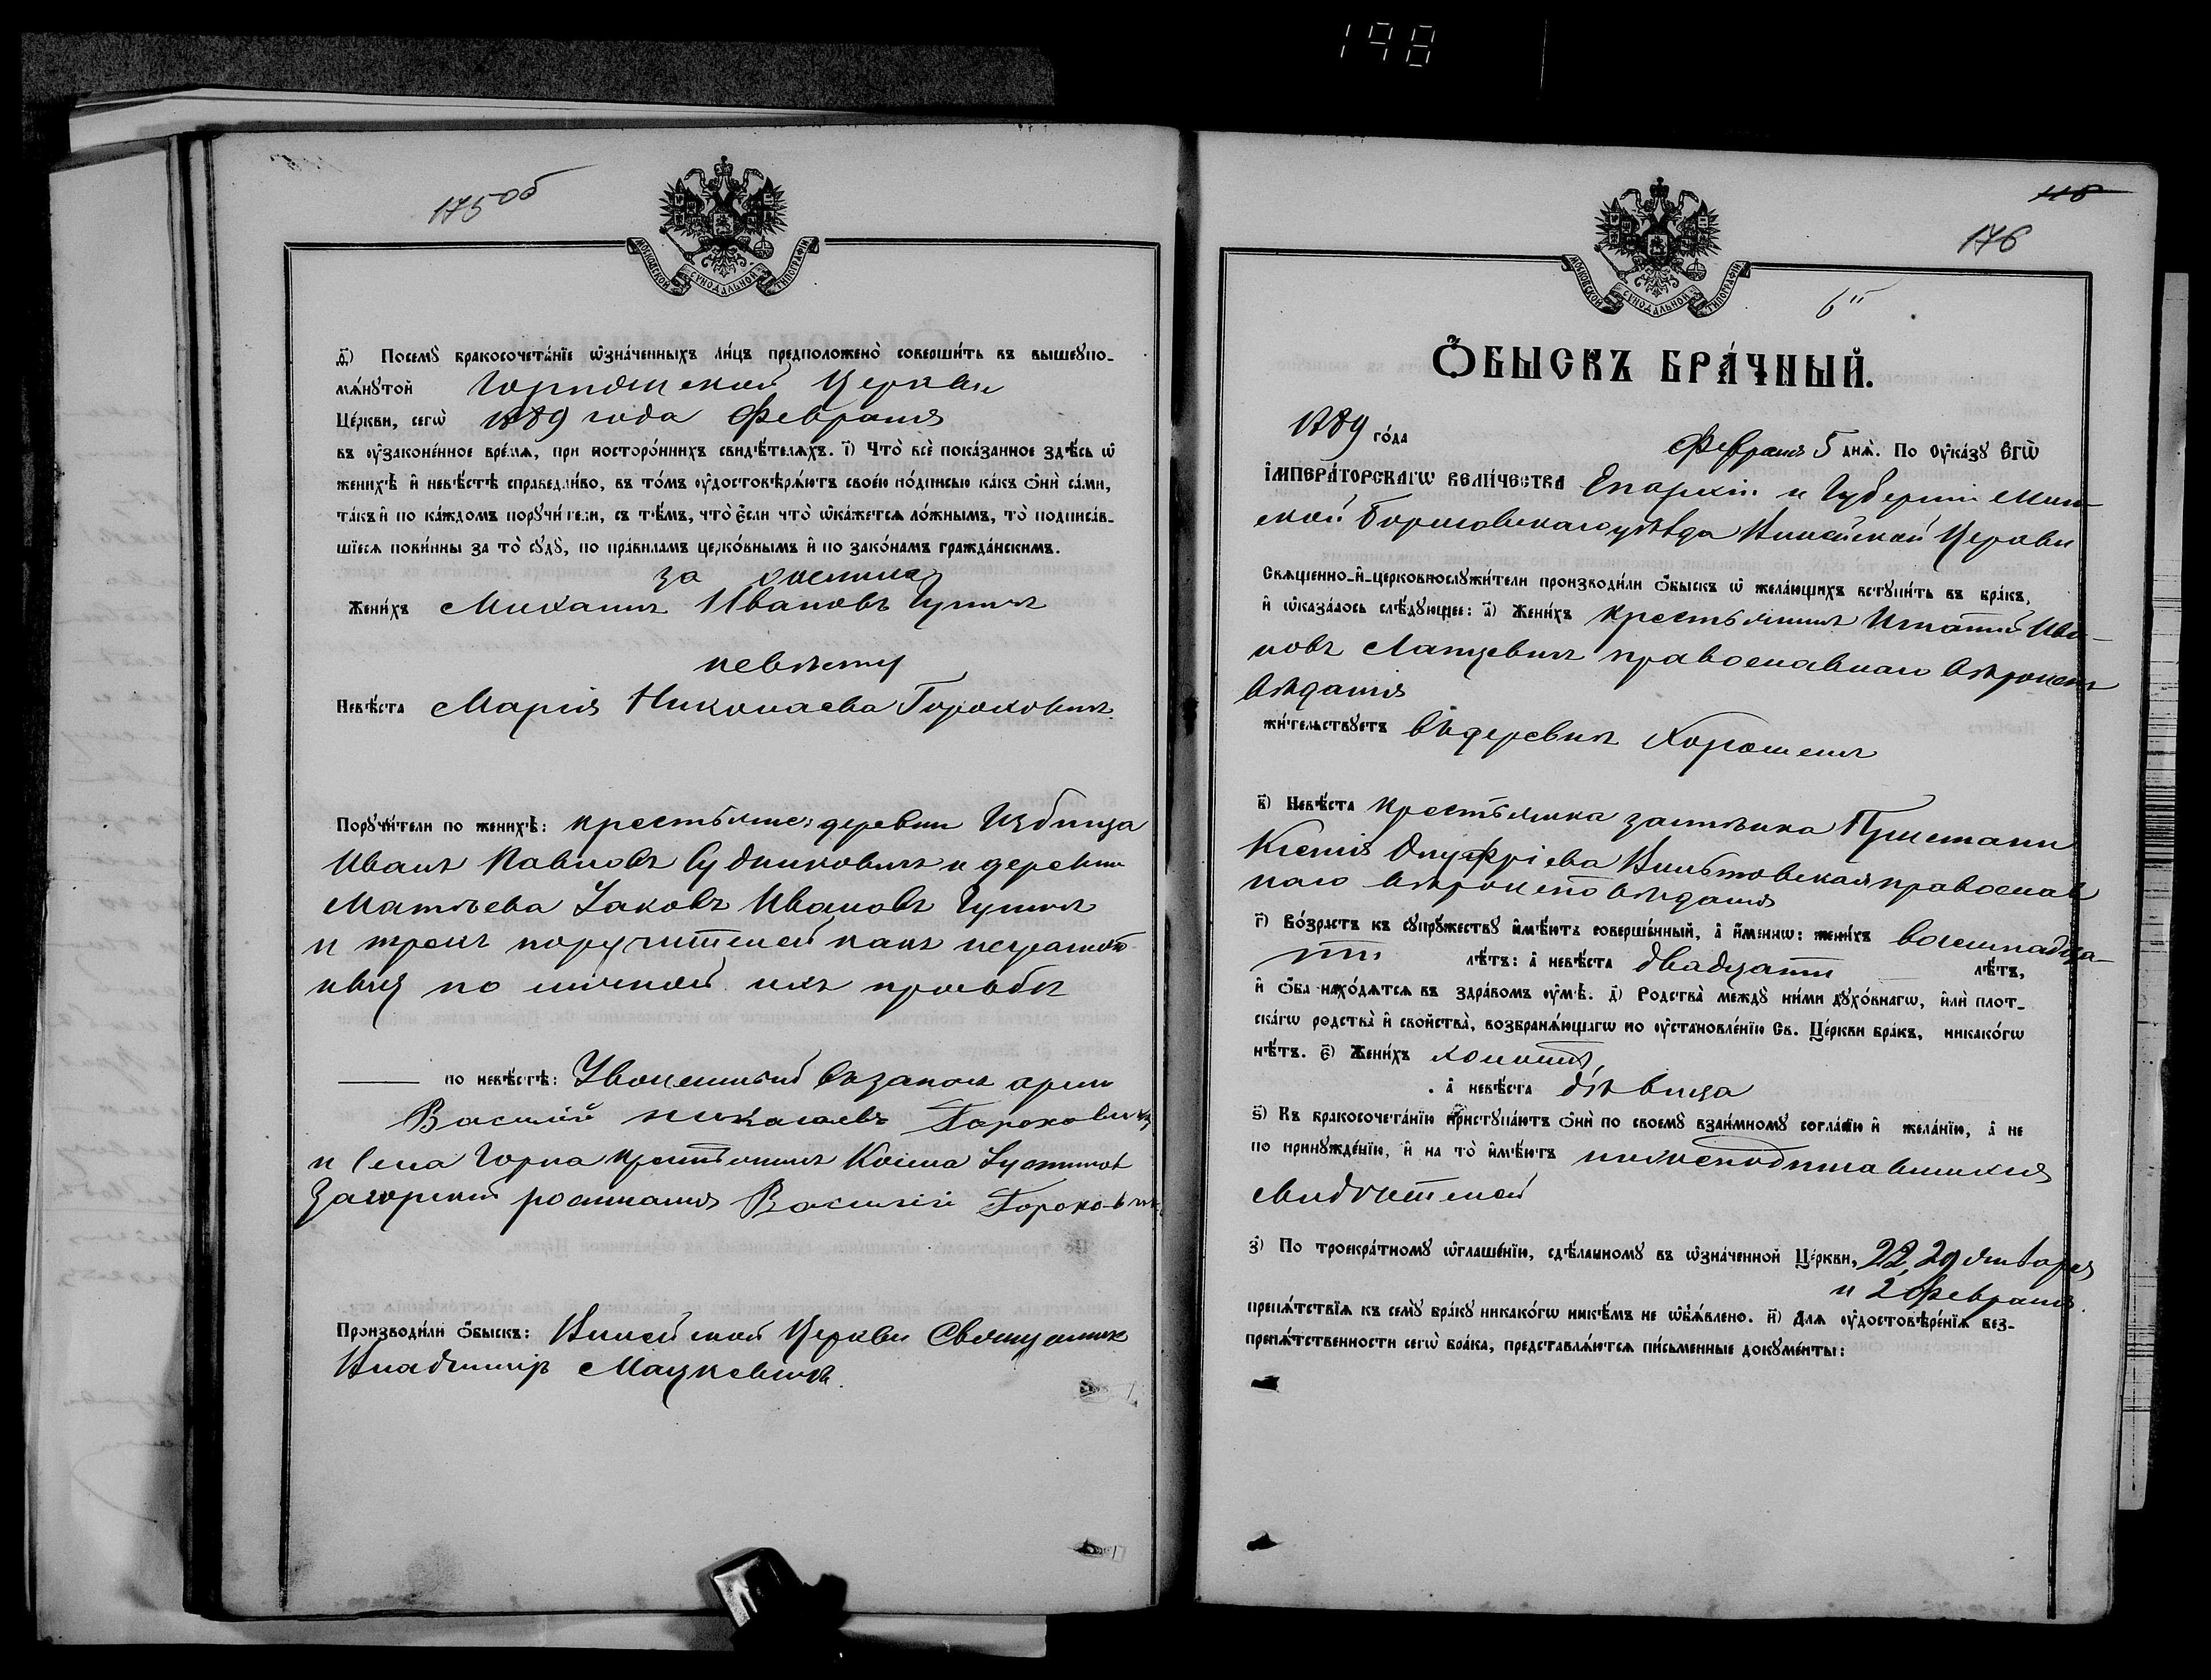 198
175 об
МОСКОВСКОЙ СУНОДАЛЬНОЙ ТИПОГРАФІИ
Посемꙋ̀ бракосочета́нїе ѡ҆зна́ченныхъ ли́цъ предположено̀ соверши́ть въ вышеꙋпо-
мѧ́нꙋтой Церкви
Це́ркви, сегѡ̀ 1889 года Февраля
въ ᲂу҆зако́ненное вре́мѧ, при посторо́ннихъ свидѣ́телѧхъ. і҃) Что̀ всѐ пока́занное здѣ́сь ѡ҆
женихѣ̀ и҆ невѣ́стѣ справедли́во, въ то́мъ ᲂу҆достовѣрѧ́ютъ свое́ю по́дписью ка́къ ѻ҆нѝ са́ми,
та́къ и҆ по ка́ждомъ порꙋчи́тели, съ тѣ́мъ, что̀ є҆́сли что̀ ѡ҆ка́жетсѧ ло́жнымъ, то̀ подписа́в-
шїесѧ пови́нны за то̀ сꙋдꙋ̀, по пра́виламъ церко́внымъ и҆ по зако́намъ гражда́нскимъ.
за
Жени́хъ Михаилъ Ивановъ
невѣсту
Невѣ́ста Марія Николаева Гороховикъ
Порꙋчи́тели по женихѣ̀: крестьяне: деревни Избища
Иванъ Павловъ Будниковичъ и деревни
Матвѣева Яковъ Ивановъ
и трехъ поручителей какъ неграмот
ныхъ по личной ихъ просьбѣ
по невѣ́стѣ: Уволенный въ запасъ арміи
Василій Николаевъ Гороховикъ
и села Горка крестьянинъ Косма
Загорскій росписался Василій Гороховикъ
Производи́ли ѻ҆́быскъ: Церкви Священникъ
Владиміръ Мацкевичъ.
118
176
МОСКОВСКОЙ СУНОДАЛЬНОЙ ТИПОГРАФІИ
6
Ѻ҆́БЫСКЪ БРА́ЧНЫЙ.
1889 го́да Февраля 5 днѧ̀. По ᲂу҆ка́зꙋ Є҆гѡ̀
І҆МПЕРА́ТОРСКАГѠ ВЕЛИ́ЧЕСТВА Епархіи и Губерніи Мин-
ской Борисовскаго уѣзда Церкви
Свѧще́нно-и҆-церковнослꙋжи́тели производи́ли ѻ҆́быскъ ѡ҆ жела́ющихъ встꙋпи́ть въ бра́къ,
и҆ ѡ҆каза́лось слѣ́дꙋющее: а҃) Жени́хъ крестьянинъ Игнатій Ива-
новъ Лапцевичъ православнаго вѣроисп
вѣданія
жи́тельствꙋетъ въ деревнѣ
в҃) Невѣ́ста крестьянка застѣнка Пристани
Ксенія Онуфріева православ
наго вѣроисповѣданія
г҃) Во́зрастъ къ сꙋпрꙋ́жествꙋ и҆мѣ́ютъ соверше́нный, а҆ и҆́меннѡ: жени́хъ восемнадца-
ти лѣ́тъ: а҆ невѣ́ста двадцати лѣ́тъ,
и҆ ѻ҆́ба нахо́дѧтсѧ въ здра́вомъ ᲂу҆мѣ̀. д҃) Родства̀ междꙋ̀ ни́ми дꙋхо́внагѡ, и҆лѝ плот-
ска́гѡ родства̀ и҆ свойства̀, возбранѧ́ющагѡ по ᲂу҆становле́нїю Св. Це́ркви бра́къ, никако́гѡ
нѣ́тъ. є҃) Жени́хъ холостъ,
а҆ невѣ́ста дѣвица
ѕ҃) Къ бракосочета́нїю пристꙋпа́ютъ ѻ҆нѝ по своемꙋ̀ взаи́мномꙋ согла́сїю и҆ жела́нїю, а҆ не
по принꙋжде́нїю, и҆ на то̀ и҆мѣ́ютъ нижеподписавшихся
свидѣтелей
з҃) По троекра́тномꙋ ѡ҆глаше́нїю, сдѣ́ланномꙋ въ ѡ҆зна́ченной Це́ркви, 22, 29 января
и 2 февраля.
препѧ́тствїѧ къ семꙋ̀ бра́кꙋ никако́гѡ никѣ́мъ не ѡ҆б̾ѧ́влено. и҃) Длѧ ᲂу҆достовѣре́нїѧ без-
препѧ́тственности сегѡ̀ бра́ка, представлѧ́ютсѧ пи́сьменные докꙋме́нты: